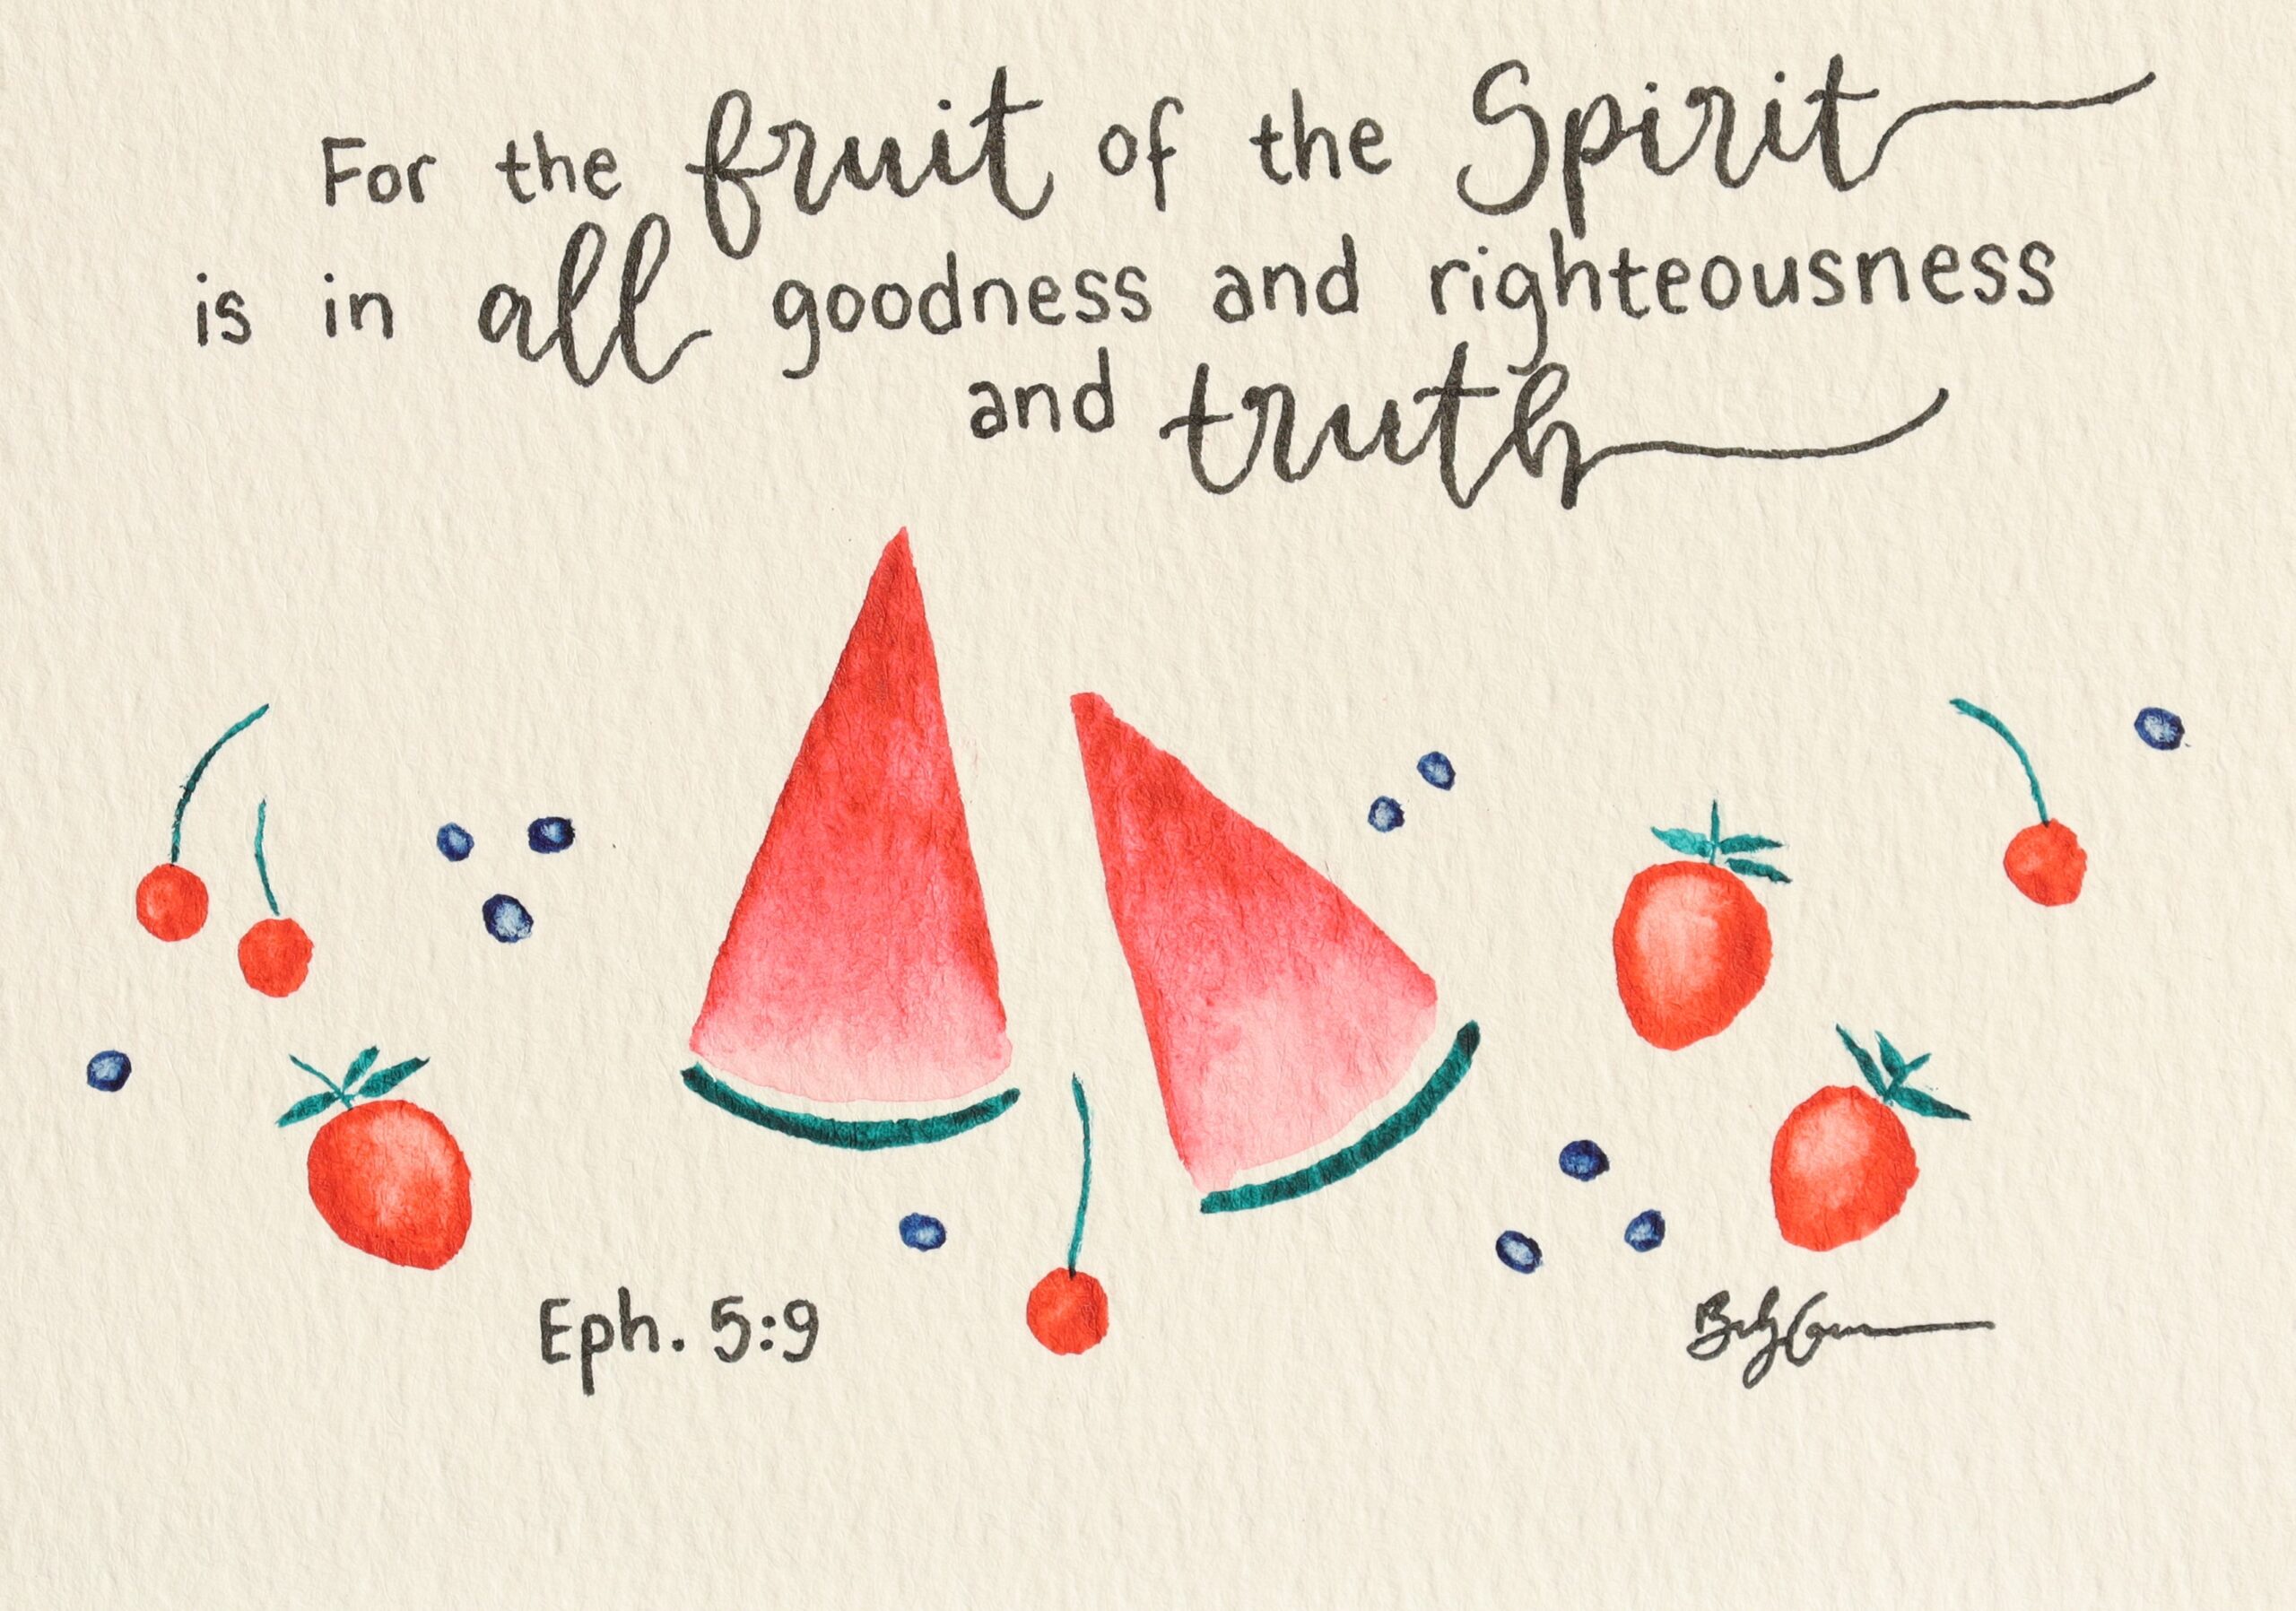 For the fruit of the Spirit
is in all goodness and righteousness
and truth
Eph. 5:9